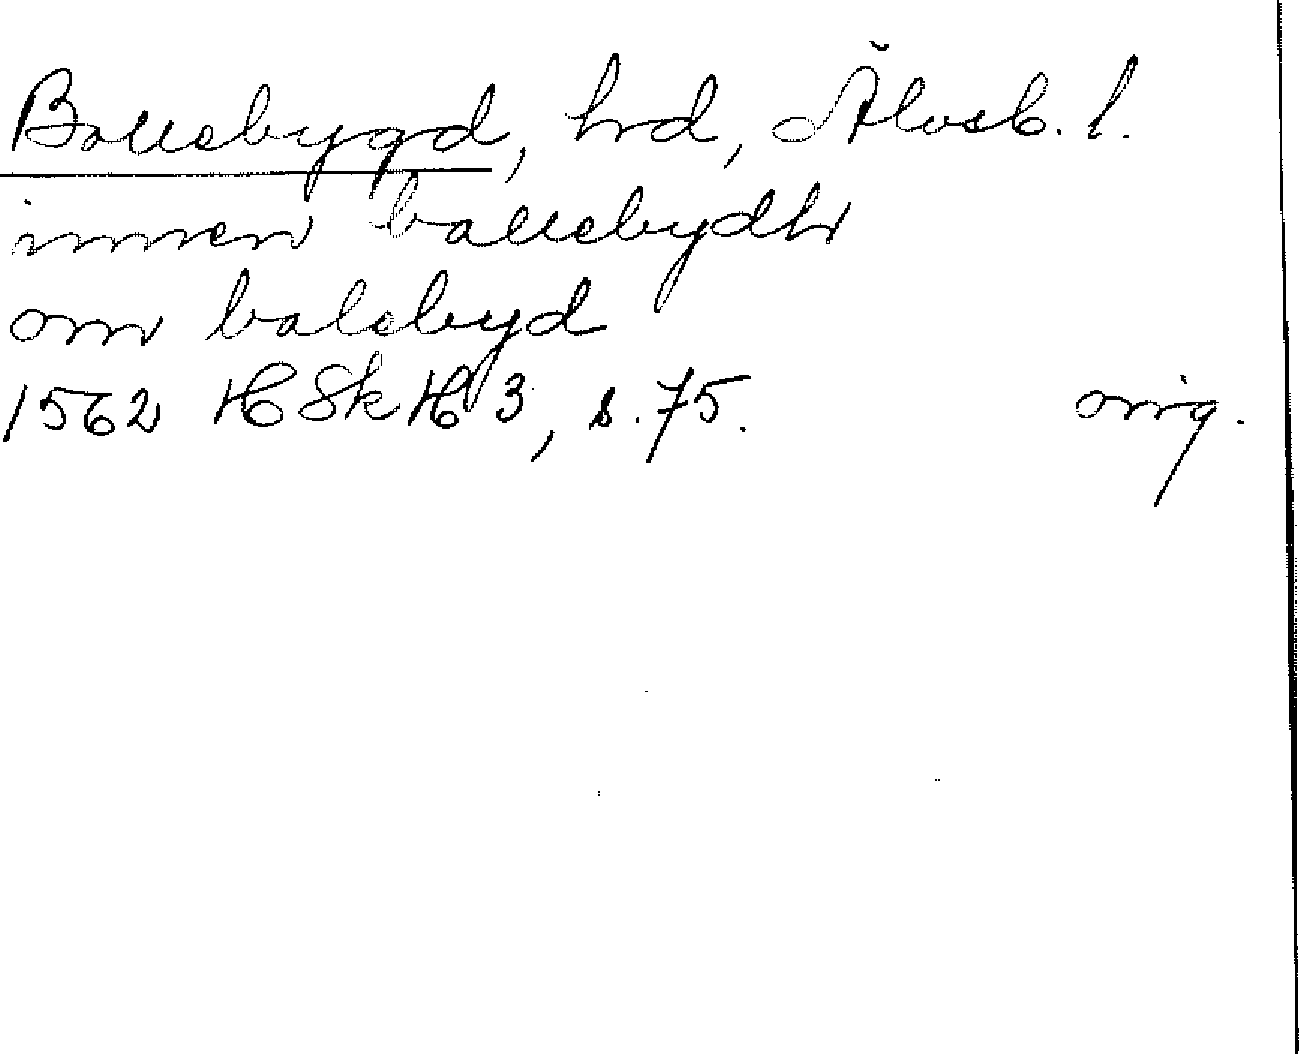 Bollebygd, hd, Älvsb. l.
innen bollebydh
om bolebyd
1562 HSkH 3, s. 75. orig.